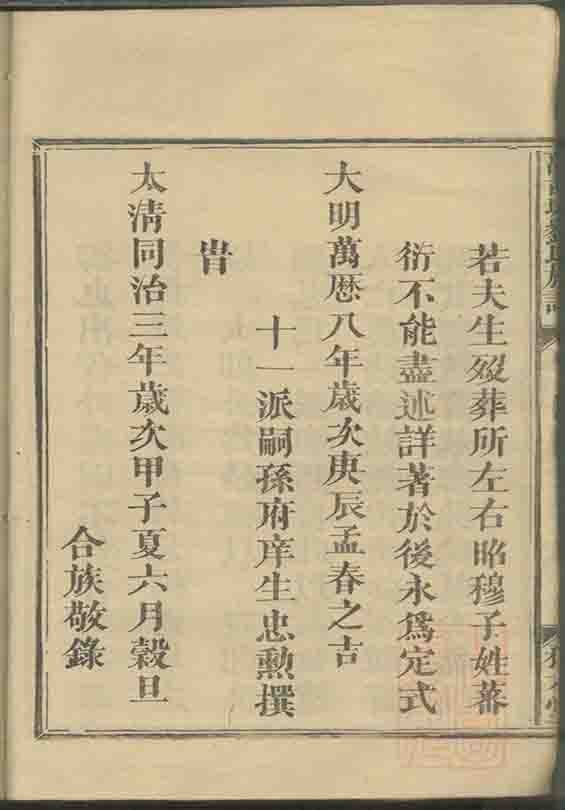 若夫生歿葬所左右昭穆子姓蕃
衍不能盡述詳著於後永爲定式
大明萬曆八年歲次庚辰孟春之吉
十一派嗣孫府庠生忠勳撰
旹
大清同治三年歲次甲子夏六月穀旦
合族敬錄